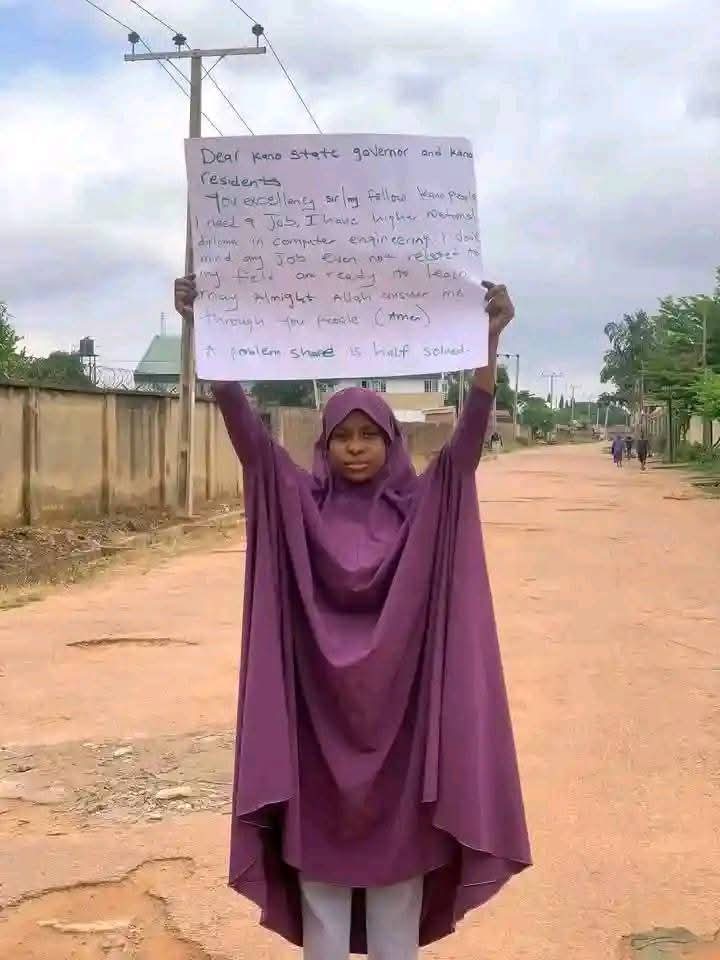 Dear Kano state governor and Kano
residents
You excellency sir/my fellow Kano people
I need a Job, I have higher National
diploma in computer engineering. I don't
mind any Job Even not related to
my field am ready to learn
may Almight Allah answer me
through you people (Amen)
A problem share is half solved.